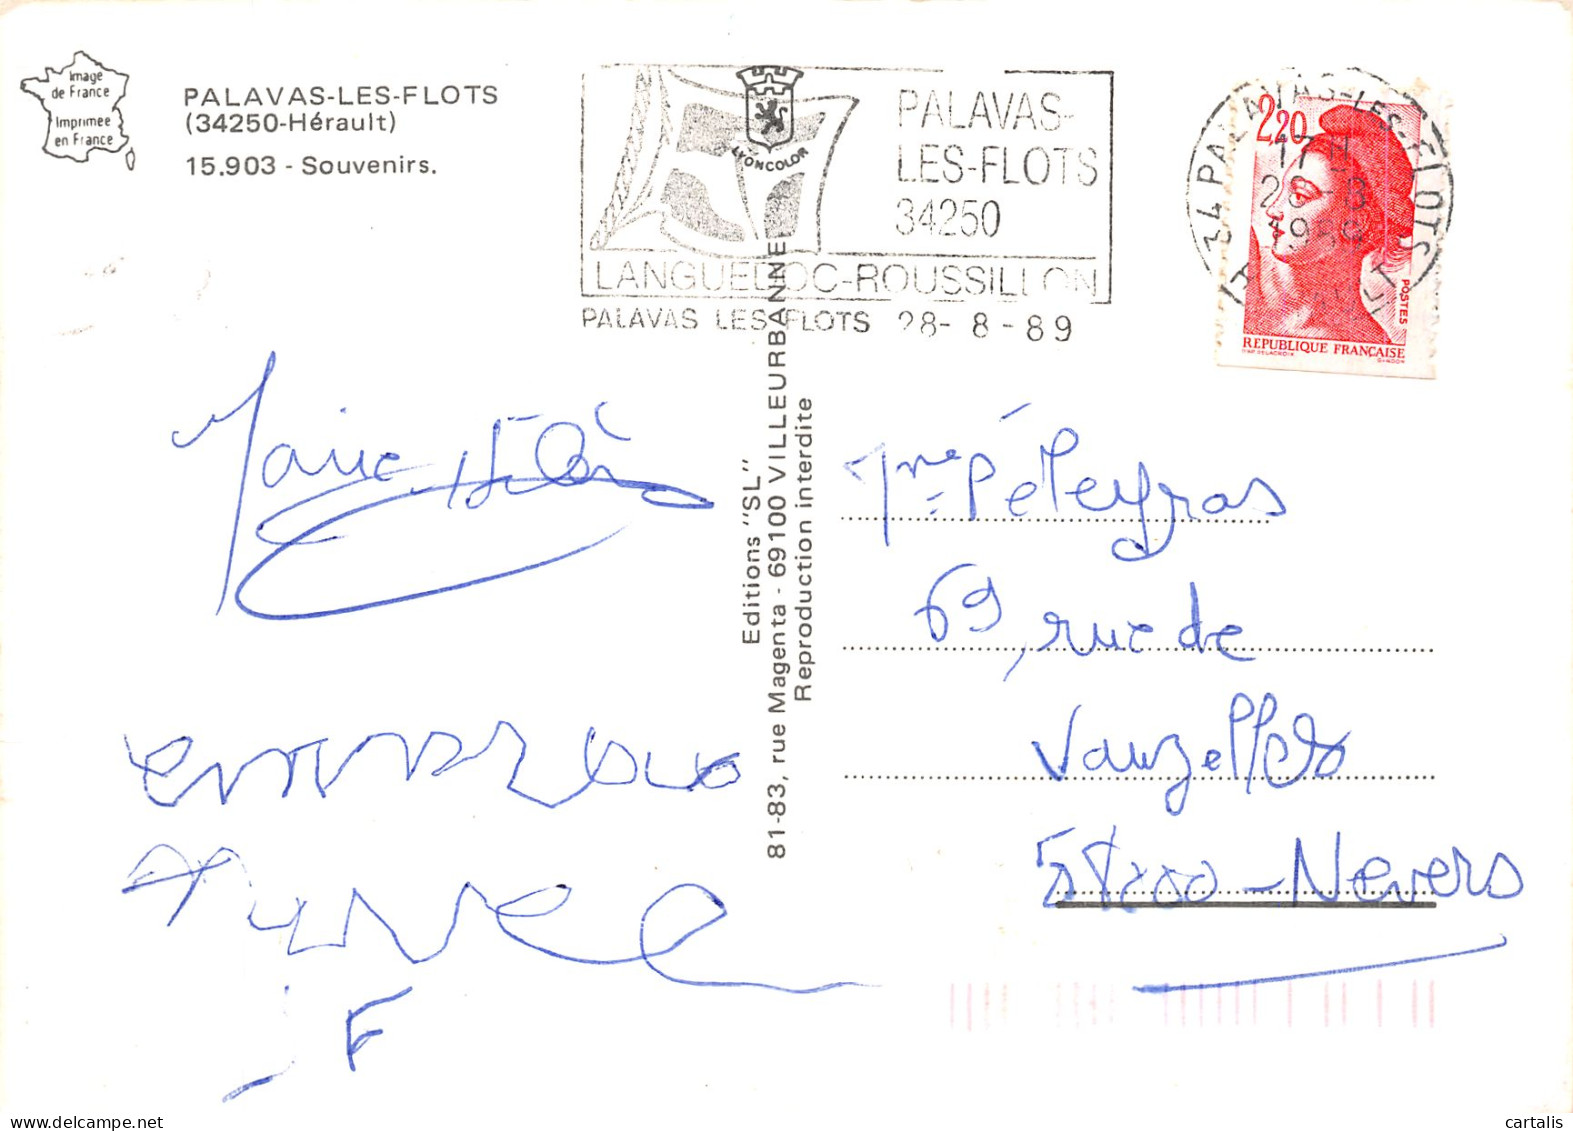 Image
de France
Imprimée
en France
PALAVAS-LES-FLOTS
(34250-Hérault)
15.903 - Souvenirs.
LYONCOLOR
PALAVAS-
LES-FLOTS
34250
LANGUEDOC-ROUSSILLON
PALAVAS LES FLOTS 28- 8 - 89
34 PALAVAS-LES-FLOTS
17H
28-8
1989
HERAULT
2,20
POSTES
REPUBLIQUE FRANÇAISE
D'AP. DELACROIX
GANDON
Editions "SL"
81-83, rue Magenta - 69100 VILLEURBANNE
Reproduction interdite
Marie
Mme Péleyras
69, rue de
Vauzelles
58000 - Nevers
F
delcampe.net
cartalis